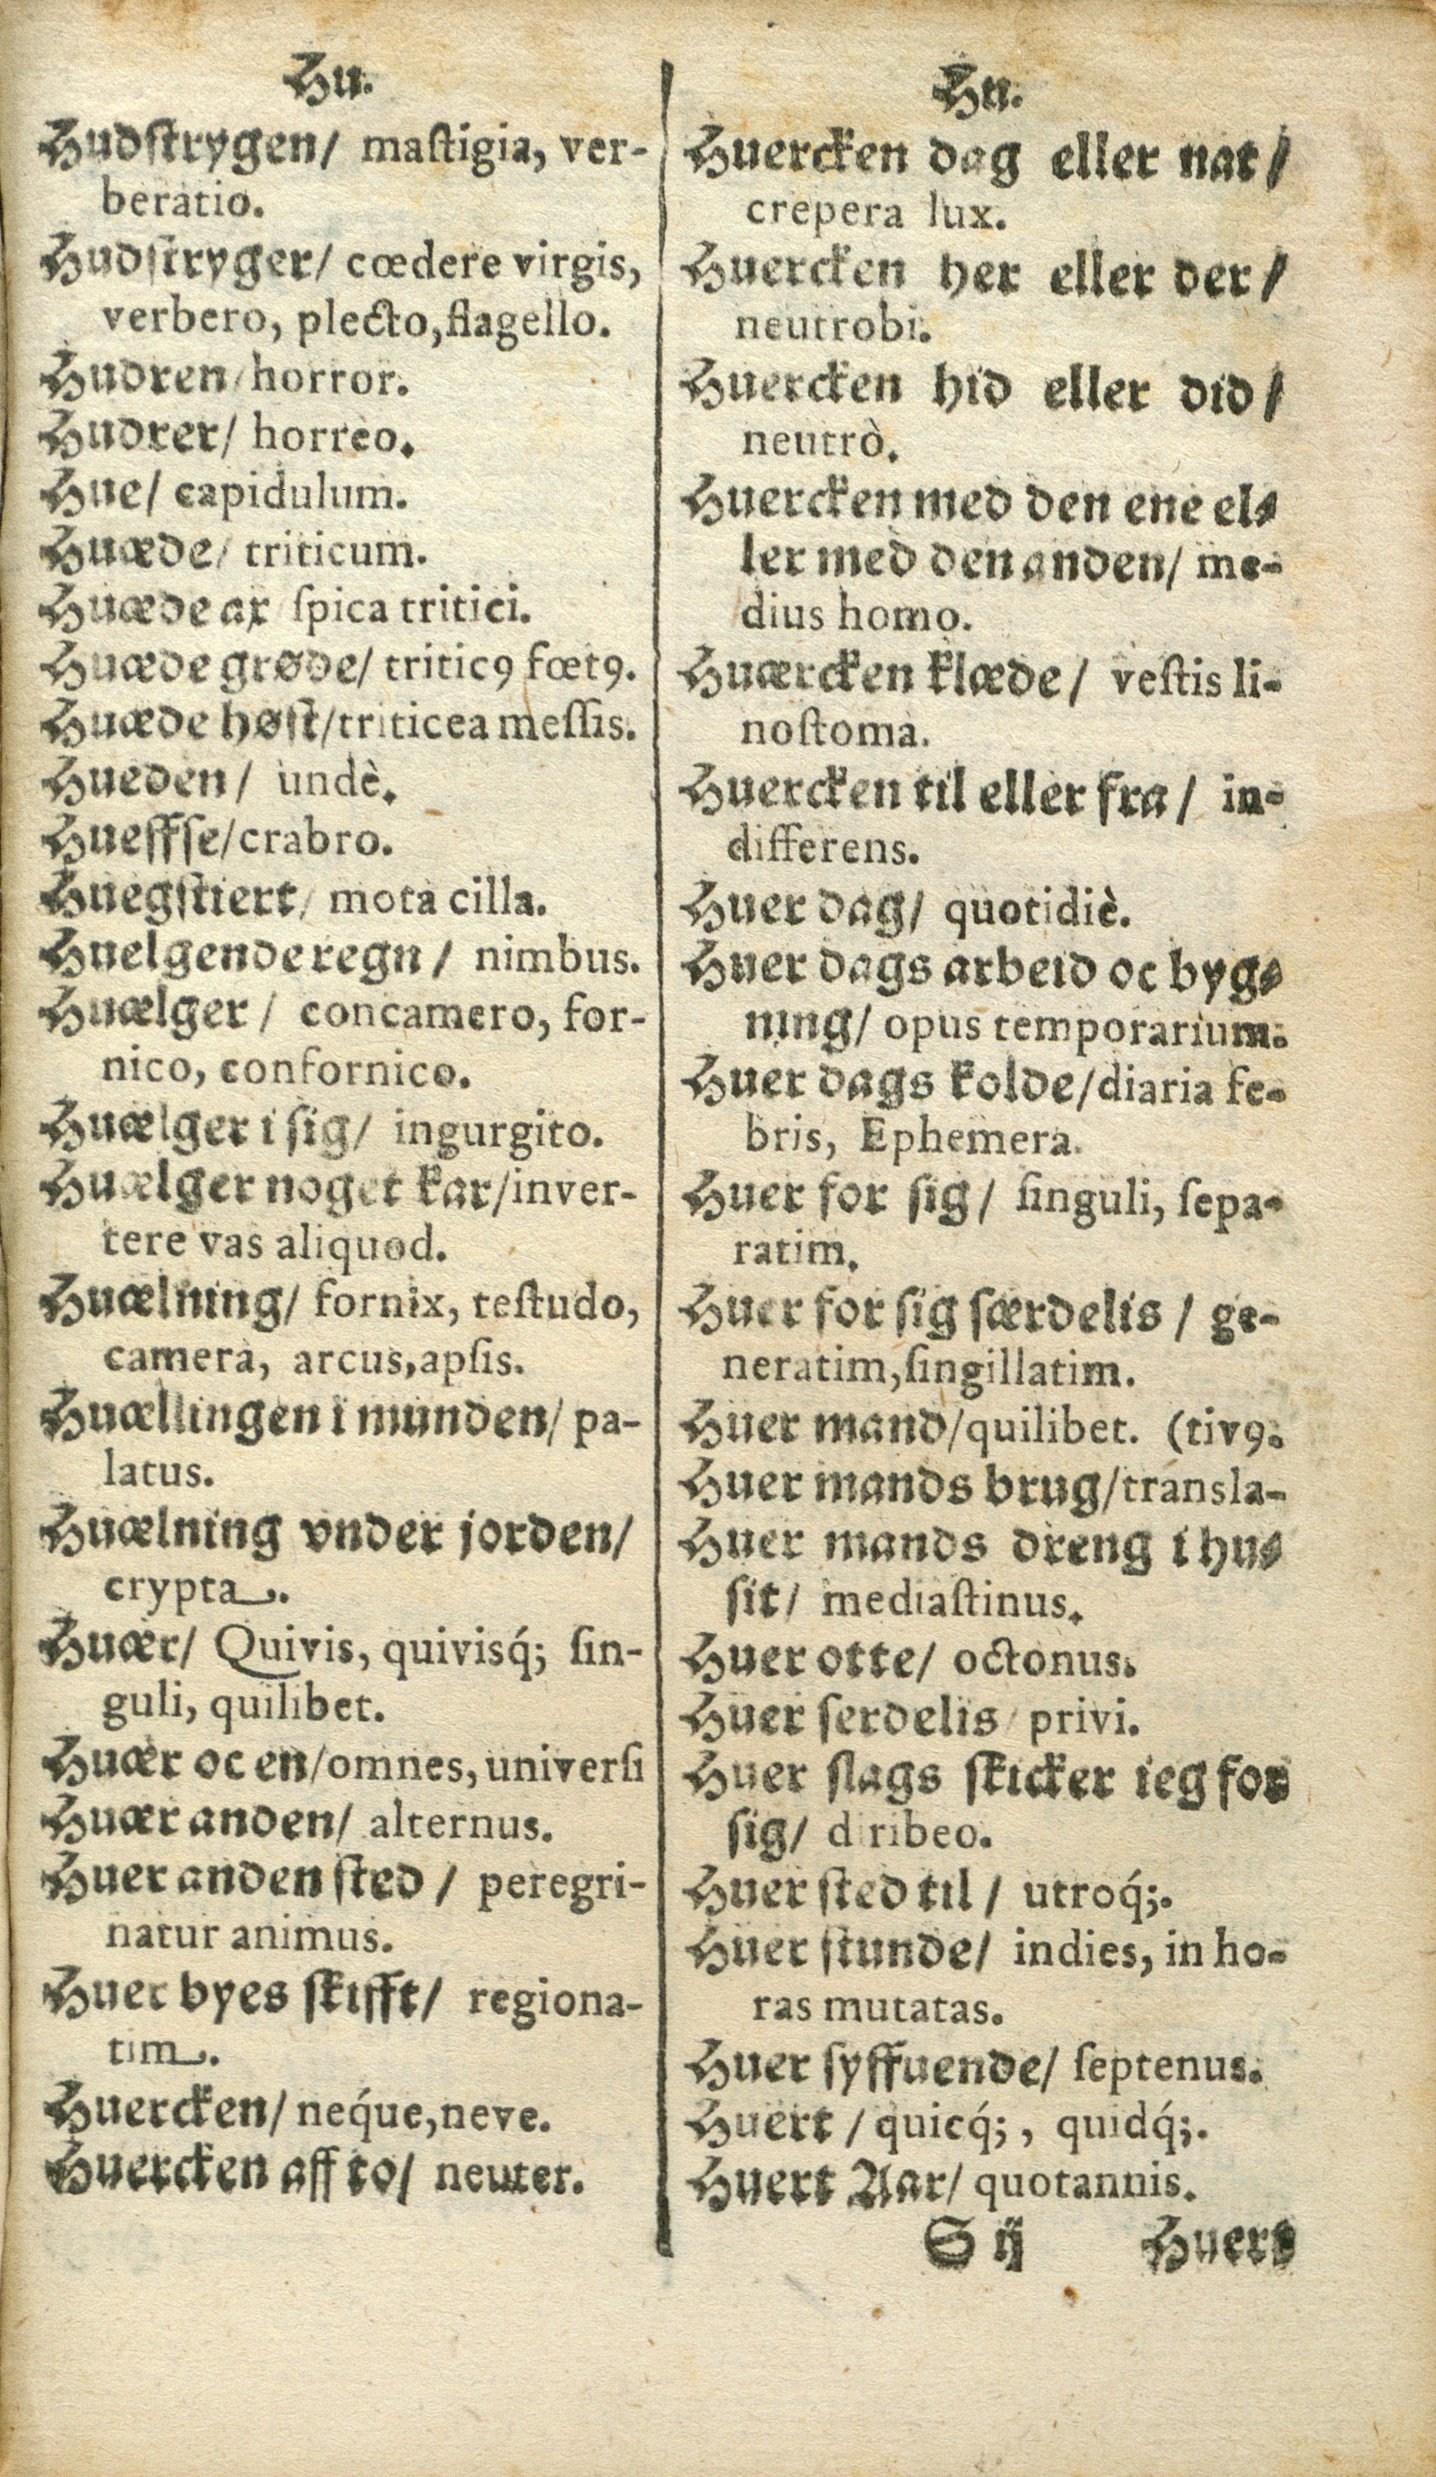 Hu.
Hudſtrygen/ maſtigia, ver-
beratio.
Hudſtryger/ cœdere virgis,
verbero, plecto, flagello.
Hudren/ horror.
Hudrer/ horreo.
Hue/ capidulum.
Huæde/ triticum.
Huæde ax/ ſpica tritici.
Huæde grøde/ triticꝰ fœtꝰ.
Huæde høſt/ triticea meſſis.
Hueden/ undè.
Hueffſe/ crabro.
Huegſtiert/ mota cilla.
Huelgende regn/ nimbus.
Huælger/ concamero, for-
nico, confornico.
Huælger i ſig/ ingurgito.
Huælger noget kar/ inver-
tere vas aliquod.
Huælning/ fornix, teſtudo,
camera, arcus, apſis.
Huællingen i munden/ pa-
latus.
Huælning vnder jorden/
crypta.
Huær/ Quivis, quivisq́; ſin-
guli, quilibet.
Huær oc en/ omnes, univerſi
Huær anden/ alternus.
Huer anden ſted/ peregri-
natur animus.
Huer byes ſkifft/ regiona-
tim.
Huercken/ neq́ue, neve.
Huercken aff to/ neuter.
Hu.
Huercken dag eller nat/
crepera lux.
Huercken her eller der/
neutrobi.
Huercken hid eller did/
neutrò.
Huercken med den ene el-
ler med den anden/ me-
dius homo.
Huærcken klæde/ veſtis li-
noſtoma.
Huercken til eller fra/ in-
differens.
Huer dag/ quotidiè.
Huer dags arbeid oc byg-
ning/ opus temporarium.
Huer dags kolde/ diaria fe-
bris, Ephemera.
Huer for ſig/ ſinguli, ſepa-
ratim.
Huer for ſig ſærdelis/ ge-
neratim, ſingillatim.
Huer mand/ quilibet. (tivꝰ.
Huer mands brug/ transla-
Huer mands dreng i hu-
ſit/ mediaſtinus.
Huer otte/ octonus.
Huer ſerdelis/ privi.
Huer ſlags ſkicker ieg for
ſig/ diribeo.
Huer ſted til/ utroq́;.
Huer ſtunde/ indies, in ho-
ras mutatas.
Huer ſyffuende/ ſeptenus.
Huert/ quicq́;, quidq́;.
Huert Aar/ quotannis.
S ij Huert